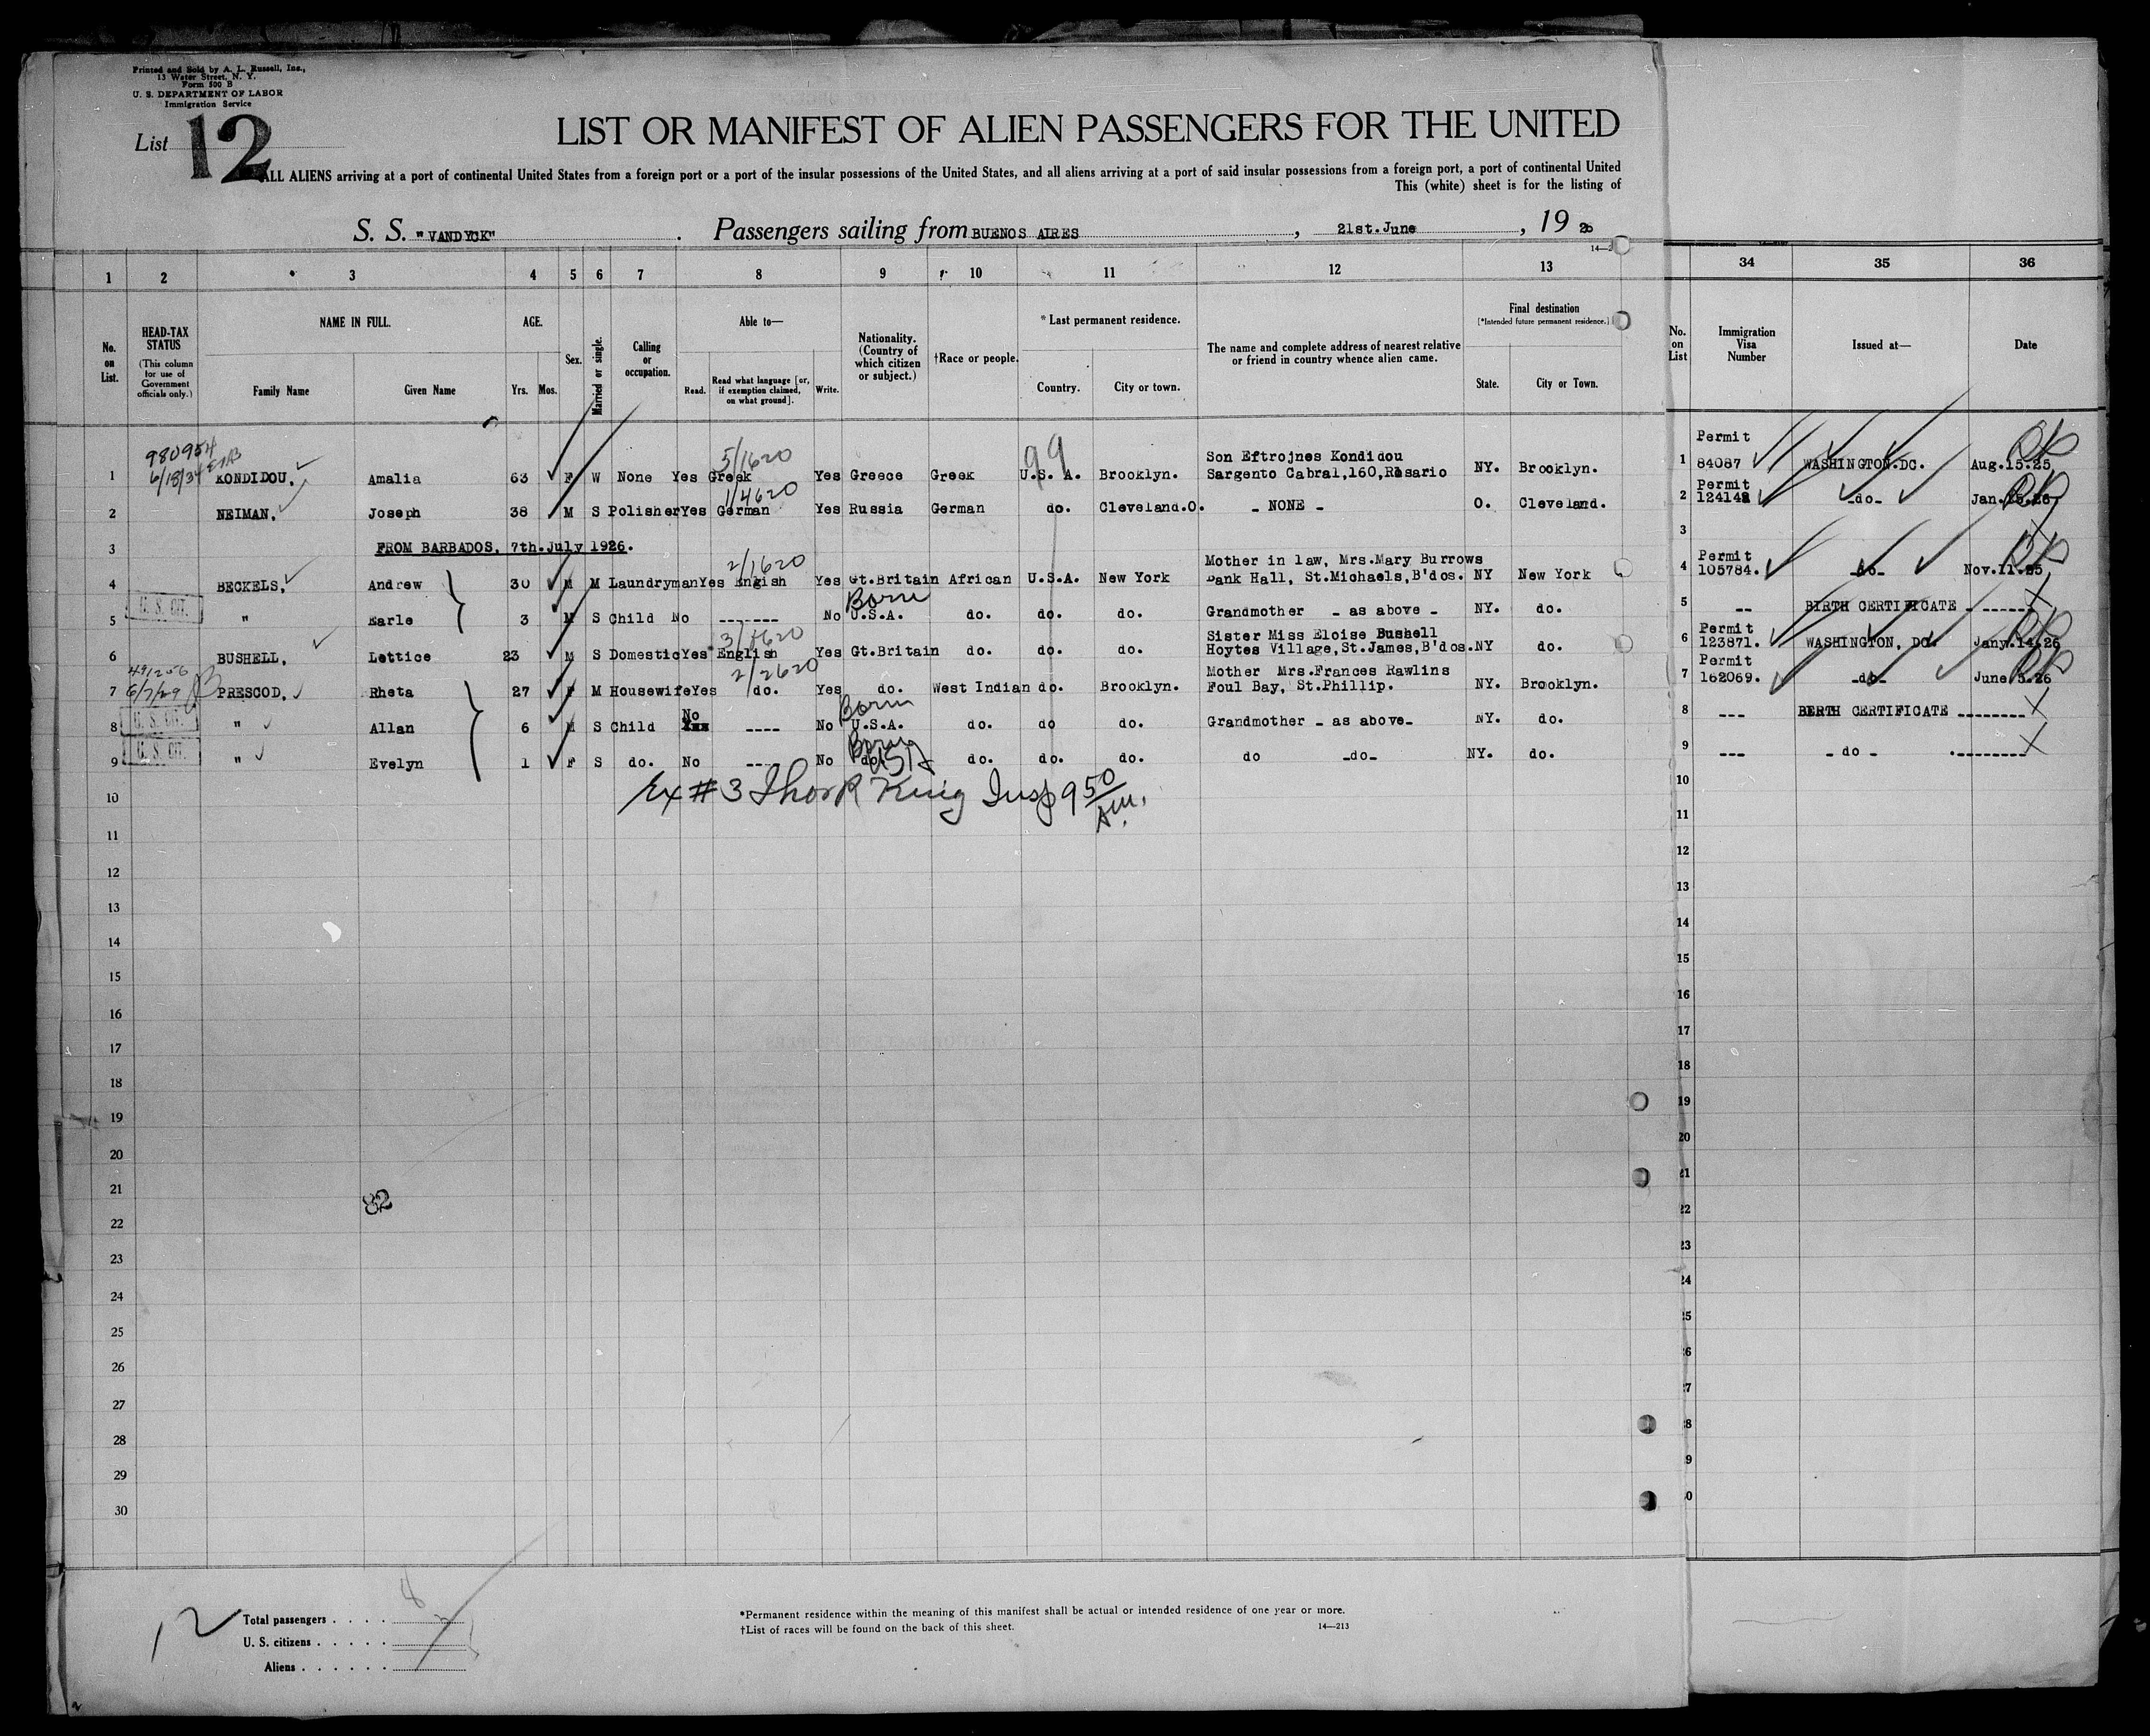 Printed and Sold by A. L. Russell, Inc.,
13 Water Street, N. Y.
Form 500 B
U. S. DEPARTMENT OF LABOR
Immigration Service
List 12
LIST OR MANIFEST OF ALIEN PASSENGERS FOR THE UNITED
ALL ALIENS arriving at a port of continental United States from a foreign port or a port of the insular possessions of the United States, and all aliens arriving at a port of said insular possessions from a foreign port, a port of continental United
This (white) sheet is for the listing of
S. S. "VANDYCK" . Passengers sailing from BUENOS AIRES , 21st.June , 19 26
1 2 3 4 5 6 7 8 9 10 11 12 13 34 35 36
No. on List.
HEAD-TAX STATUS
(This column for use of Government officials only.)
NAME IN FULL.
Family Name Given Name
AGE.
Yrs. Mos.
Sex.
Married or single.
Calling or occupation.
Able to—
Read. Read what language [or, if exemption claimed, on what ground]. Write.
Nationality. (Country of which citizen or subject.)
†Race or people.
*Last permanent residence.
Country. City or town.
The name and complete address of nearest relative or friend in country whence alien came.
Final destination
[*Intended future permanent residence.]
State. City or Town.
No. on List
Immigration Visa Number
Issued at—
Date
980954
6/13/34
5/1620
99
Son Eftrojnes Kondidou
Permit
1 KONDIDOU, Amalia 63 F W None Yes Greek Yes Greece Greek U.S. A. Brooklyn. Sargento Cabral,160,Rosario NY. Brooklyn. 1 84087 WASHINGTON.DC. Aug.15.25
1/4620
Permit
2 NEIMAN, Joseph 38 M S Polisher Yes German Yes Russia German do. Cleveland.O. - NONE - O. Cleveland. 2 124142 -do- Jan.15.26
3 FROM BARBADOS, 7th.July 1926. 3
2/1620
Mother in law, Mrs.Mary Burrows
Permit
4 BECKELS, Andrew 30 M M Laundryman Yes Engish Yes Gt.Britain African U.S.A. New York Bank Hall, St.Michaels,B'dos. NY New York 4 105784. -do- Nov.11.25
Born
5 U. S. CIT. " Earle 3 M S Child No ------- No U.S.A. do. do. do. Grandmother - as above - NY. do. 5 -- BIRTH CERTIFICATE - ------
3/1620
Sister Miss Eloise Bushell
Permit
6 BUSHELL, Lettice 23 M S Domestic Yes English Yes Gt.Britain do. do. do. Hoytes Village,St.James,B'dos. NY do. 6 123871. WASHINGTON, DC. Jany.14.26
491256
6/7/29
2/2620
Mother Mrs.Frances Rawlins
Permit
7 PRESCOD, Rheta 27 F M Housewife Yes do. Yes do. West Indian do. Brooklyn. Foul Bay, St.Phillip. NY. Brooklyn. 7 162069. -do- June 5.26
No
Born
8 U. S. CIT. " Allan 6 M S Child No ---- No U.S.A. do. do do. Grandmother - as above- NY. do. 8 --- BERTH CERTIFICATE --------
Born
9 U. S. CIT. " Evelyn 1 F S do. No ---- No do. USA do. do. do. do -do- NY. do. 9 --- - do - ---------
Ex # 3 Thos R King Insp 9 50 Am.
10 10
11 11
12 12
13 13
14 14
15 15
16 16
17 17
18 18
19 19
20 20
21 21
82
22 22
23 23
24 24
25 25
26 26
27 27
28 28
29 29
30 30
12
Total passengers . . . .
U. S. citizens . . . . .
Aliens . . . . . .
*Permanent residence within the meaning of this manifest shall be actual or intended residence of one year or more.
†List of races will be found on the back of this sheet.
14—213